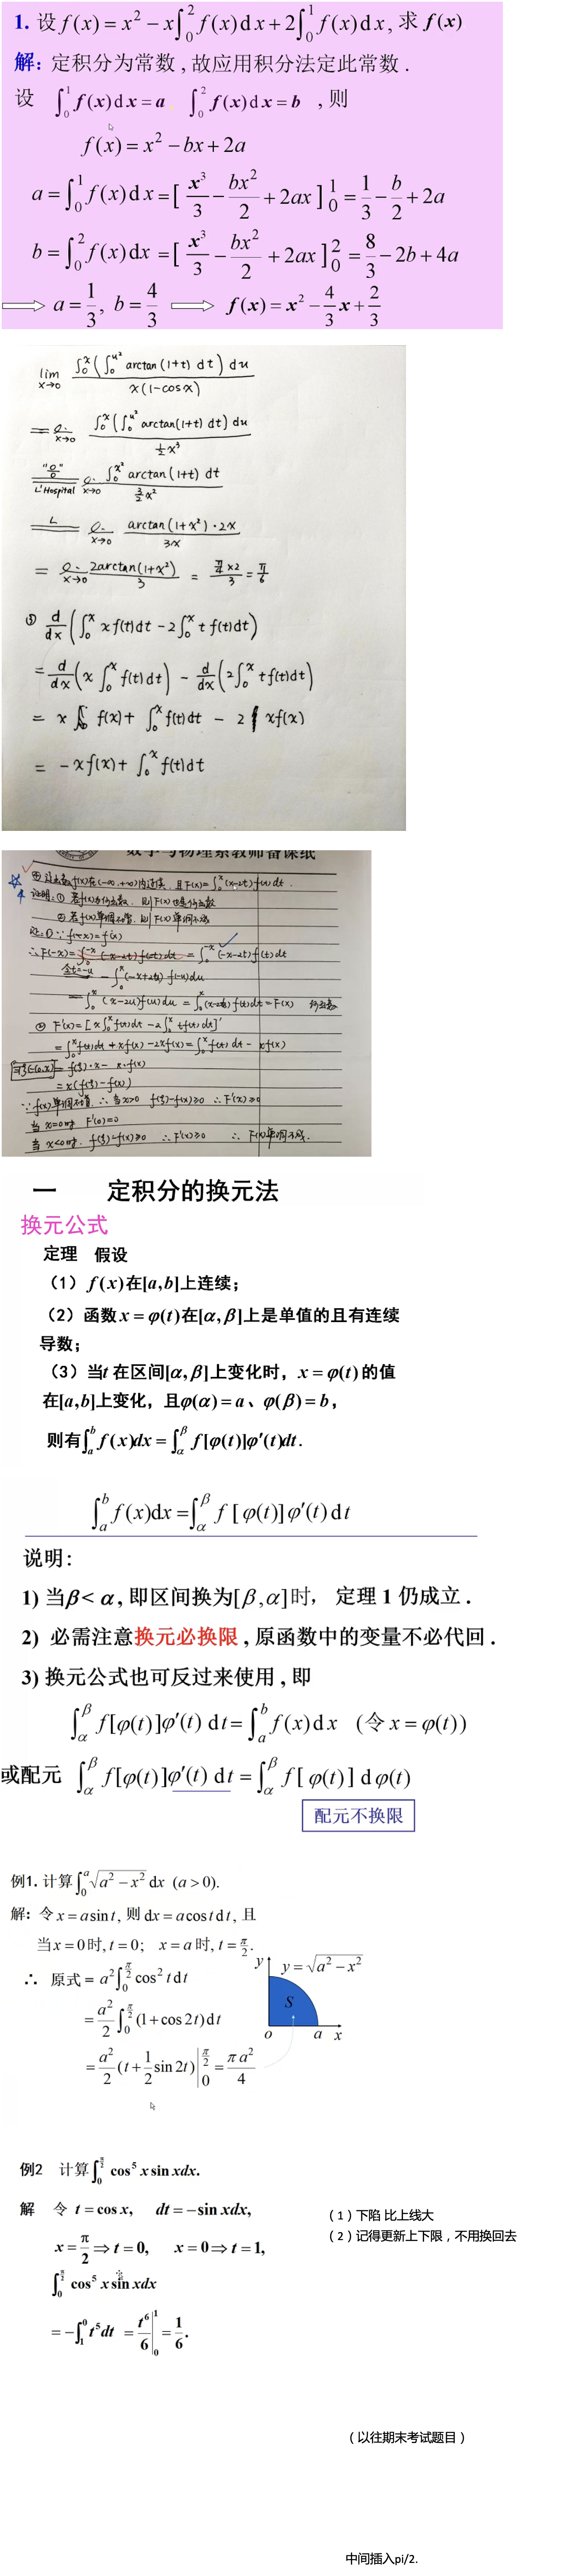 1. 设 f(x) = x² − x∫₀² f(x)dx + 2∫₀¹ f(x)dx, 求 f(x)
解: 定积分为常数 , 故应用积分法定此常数 .
设 ∫₀¹ f(x)dx = a ∫₀² f(x)dx = b , 则
f(x) = x² − bx + 2a
a = ∫₀¹ f(x)dx = [ x³/3 − bx²/2 + 2ax ]₀¹ = 1/3 − b/2 + 2a
b = ∫₀² f(x)dx = [ x³/3 − bx²/2 + 2ax ]₀² = 8/3 − 2b + 4a
⇒ a = 1/3, b = 4/3 ⇒ f(x) = x² − 4/3 x + 2/3
lim x→0 ∫₀ˣ (∫₀^{u²} arctan(1+t) dt) du / x(1−cosx)
= lim x→0 ∫₀ˣ (∫₀^{u²} arctan(1+t) dt) du / ½x³
"0/0" L'Hospital lim x→0 ∫₀^{x²} arctan(1+t) dt / (3/2)x²
L = lim x→0 arctan(1+x²)·2x / 3x
= lim x→0 2arctan(1+x²) / 3 = (π/4 × 2)/3 = π/6
③ d/dx (∫₀ˣ x f(t)dt − 2∫₀ˣ t f(t)dt)
= d/dx (x ∫₀ˣ f(t)dt) − d/dx (2∫₀ˣ t f(t)dt)
= x f(x) + ∫₀ˣ f(t)dt − 2 x f(x)
= −x f(x) + ∫₀ˣ f(t)dt
数学与物理系教师备课纸
④ 设函数 f(x)在(−∞,+∞)内连续, 且 F(x)=∫₀ˣ (x−2t) f(t) dt.
证明: ① 若f(x)为偶函数, 则F(x)也是偶函数
② 若f(x)单调不增, 则F(x)单调不减
证: ① ∵ f(−x)=f(x)
∴ F(−x)=∫₀^{−x} (−x−2t) f(t) dt = ∫₀^{−x} (−x−2t) f(t) dt
令t=−u −∫₀ˣ (−x+2u) f(−u) du
= ∫₀ˣ (x−2u) f(u) du = ∫₀ˣ (x−2t) f(t) dt = F(x) 偶函数
② F'(x)=[x∫₀ˣ f(t) dt − 2∫₀ˣ t f(t) dt]'
= ∫₀ˣ f(t) dt + x f(x) − 2x f(x) = ∫₀ˣ f(t) dt − x f(x)
∃ξ∈(0,x) = f(ξ)·x − x·f(x)
= x(f(ξ)−f(x))
∵ f(x)单调不增, ∴ 当x>0 f(ξ)−f(x)≥0 ∴ F'(x)≥0
当 x=0时 F'(0)=0
当 x<0时. f(ξ)−f(x)≤0 ∴ F'(x)≥0 ∴ F(x)单调不减.
一 定积分的换元法
换元公式
定理 假设
（1）f(x)在[a,b]上连续；
（2）函数 x = φ(t)在[α,β]上是单值的且有连续
导数；
（3）当t 在区间[α,β]上变化时，x = φ(t) 的值
在[a,b]上变化，且φ(α) = a 、φ(β) = b，
则有∫ₐᵇ f(x)dx = ∫_α^β f[φ(t)]φ′(t)dt.
∫ₐᵇ f(x)dx = ∫_α^β f [ φ(t)] φ′(t) dt
说明:
1) 当β < α , 即区间换为[β,α]时, 定理 1 仍成立 .
2) 必需注意换元必换限 , 原函数中的变量不必代回 .
3) 换元公式也可反过来使用 , 即
∫_α^β f[φ(t)]φ′(t) dt = ∫ₐᵇ f(x)dx (令 x = φ(t))
或配元 ∫_α^β f[φ(t)]φ′(t) dt = ∫_α^β f[ φ(t)] dφ(t)
配元不换限
例1. 计算 ∫₀ᵃ √(a² − x²) dx (a > 0).
解: 令 x = a sin t, 则 dx = a cos t dt, 且
当 x = 0 时, t = 0; x = a 时, t = π/2.
∴ 原式 = a² ∫₀^{π/2} cos² t dt
= a²/2 ∫₀^{π/2} (1 + cos 2t) dt
= a²/2 (t + 1/2 sin 2t) |₀^{π/2} = πa²/4
y y = √(a² − x²)
S
o a x
例2 计算 ∫₀^{π/2} cos⁵ x sin xdx.
解 令 t = cos x, dt = −sin xdx,
x = π/2 ⇒ t = 0, x = 0 ⇒ t = 1,
∫₀^{π/2} cos⁵ x sin xdx
= −∫₁⁰ t⁵dt = t⁶/6 |₀¹ = 1/6.
（1）下陷 比上线大
（2）记得更新上下限，不用换回去
（以往期末考试题目）
中间插入pi/2.